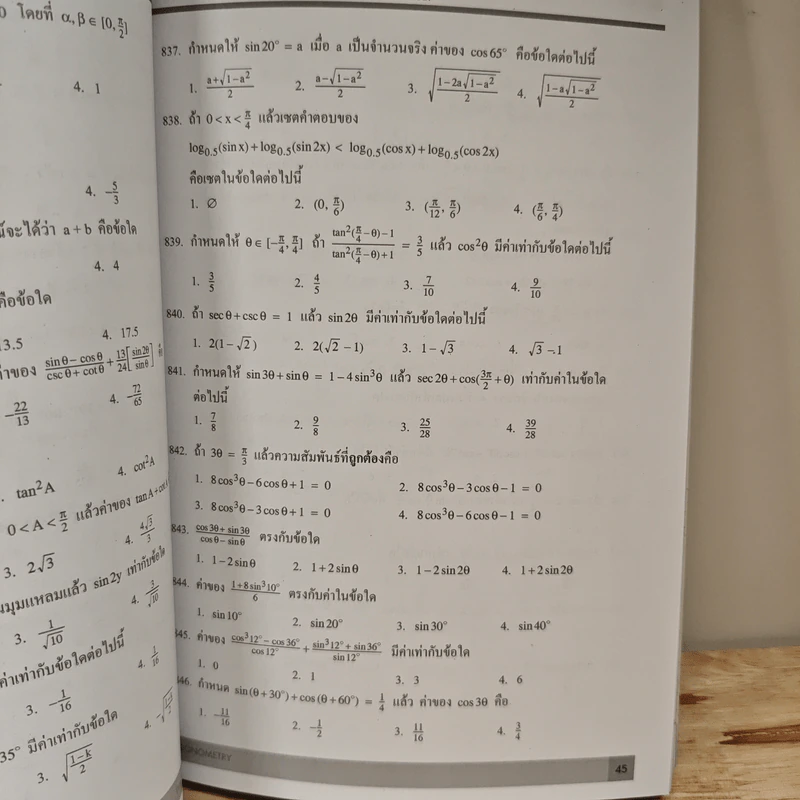 โดยที่ α, β ∈ [0, π/2]
4. 1
4. -5/3
จะได้ว่า a + b คือข้อใด
4. 4
คือข้อใด
13.5
4. 17.5
ค่าของ (sin θ − cos θ)/(csc θ + cot θ) + 13/24 [sin 2θ/sin θ]
-22/13
4. -72/65
tan²A
4. cot²A
0 < A < π/2 แล้วค่าของ tan A + cot
3. 2√3
4. 4√3/3
มุมแหลมแล้ว sin 2y เท่ากับข้อใด
3. 1/√10
4. 3/√10
ค่าเท่ากับข้อใดต่อไปนี้
3. -1/16
4. 1/16
35° มีค่าเท่ากับข้อใด
3. √((1−k)/2)
837. กำหนดให้ sin 20° = a เมื่อ a เป็นจำนวนจริง ค่าของ cos 65° คือข้อใดต่อไปนี้
1. (a+√(1−a²))/2 2. (a−√(1−a²))/2 3. √((1−2a√(1−a²))/2) 4. √((1−a√(1−a²))/2)
838. ถ้า 0 < x < π/4 แล้วเซตคำตอบของ
log₀.₅(sin x) + log₀.₅(sin 2x) < log₀.₅(cos x) + log₀.₅(cos 2x)
คือเซตในข้อใดต่อไปนี้
1. ∅ 2. (0, π/6) 3. (π/12, π/6) 4. (π/6, π/4)
839. กำหนดให้ θ ∈ [-π/4, π/4] ถ้า (tan²(π/4 − θ) − 1)/(tan²(π/4 − θ) + 1) = 3/5 แล้ว cos²θ มีค่าเท่ากับข้อใดต่อไปนี้
1. 3/5 2. 4/5 3. 7/10 4. 9/10
840. ถ้า sec θ + csc θ = 1 แล้ว sin 2θ มีค่าเท่ากับข้อใดต่อไปนี้
1. 2(1−√2) 2. 2(√2 −1) 3. 1−√3 4. √3 −1
841. กำหนดให้ sin 3θ + sin θ = 1 − 4 sin³θ แล้ว sec 2θ + cos(3π/2 + θ) เท่ากับค่าในข้อใด
ต่อไปนี้
1. 7/8 2. 9/8 3. 25/28 4. 39/28
842. ถ้า 3θ = π/3 แล้วความสัมพันธ์ที่ถูกต้องคือ
1. 8 cos³θ − 6 cos θ + 1 = 0 2. 8 cos³θ − 3 cos θ − 1 = 0
3. 8 cos³θ − 3 cos θ + 1 = 0 4. 8 cos³θ − 6 cos θ − 1 = 0
843. (cos 3θ + sin 3θ)/(cos θ − sin θ) ตรงกับข้อใด
1. 1 − 2 sin θ 2. 1 + 2 sin θ 3. 1 − 2 sin 2θ 4. 1 + 2 sin 2θ
844. ค่าของ (1 + 8 sin³10°)/6 ตรงกับค่าในข้อใด
1. sin 10° 2. sin 20° 3. sin 30° 4. sin 40°
845. ค่าของ (cos³12° − cos 36°)/cos 12° + (sin³12° + sin 36°)/sin 12° มีค่าเท่ากับข้อใด
1. 0 2. 1 3. 3 4. 6
846. กำหนด sin(θ + 30°) + cos(θ + 60°) = 1/4 แล้ว ค่าของ cos 3θ คือ
1. -11/16 2. -1/2 3. 11/16 4. 3/4
GONOMETRY
45